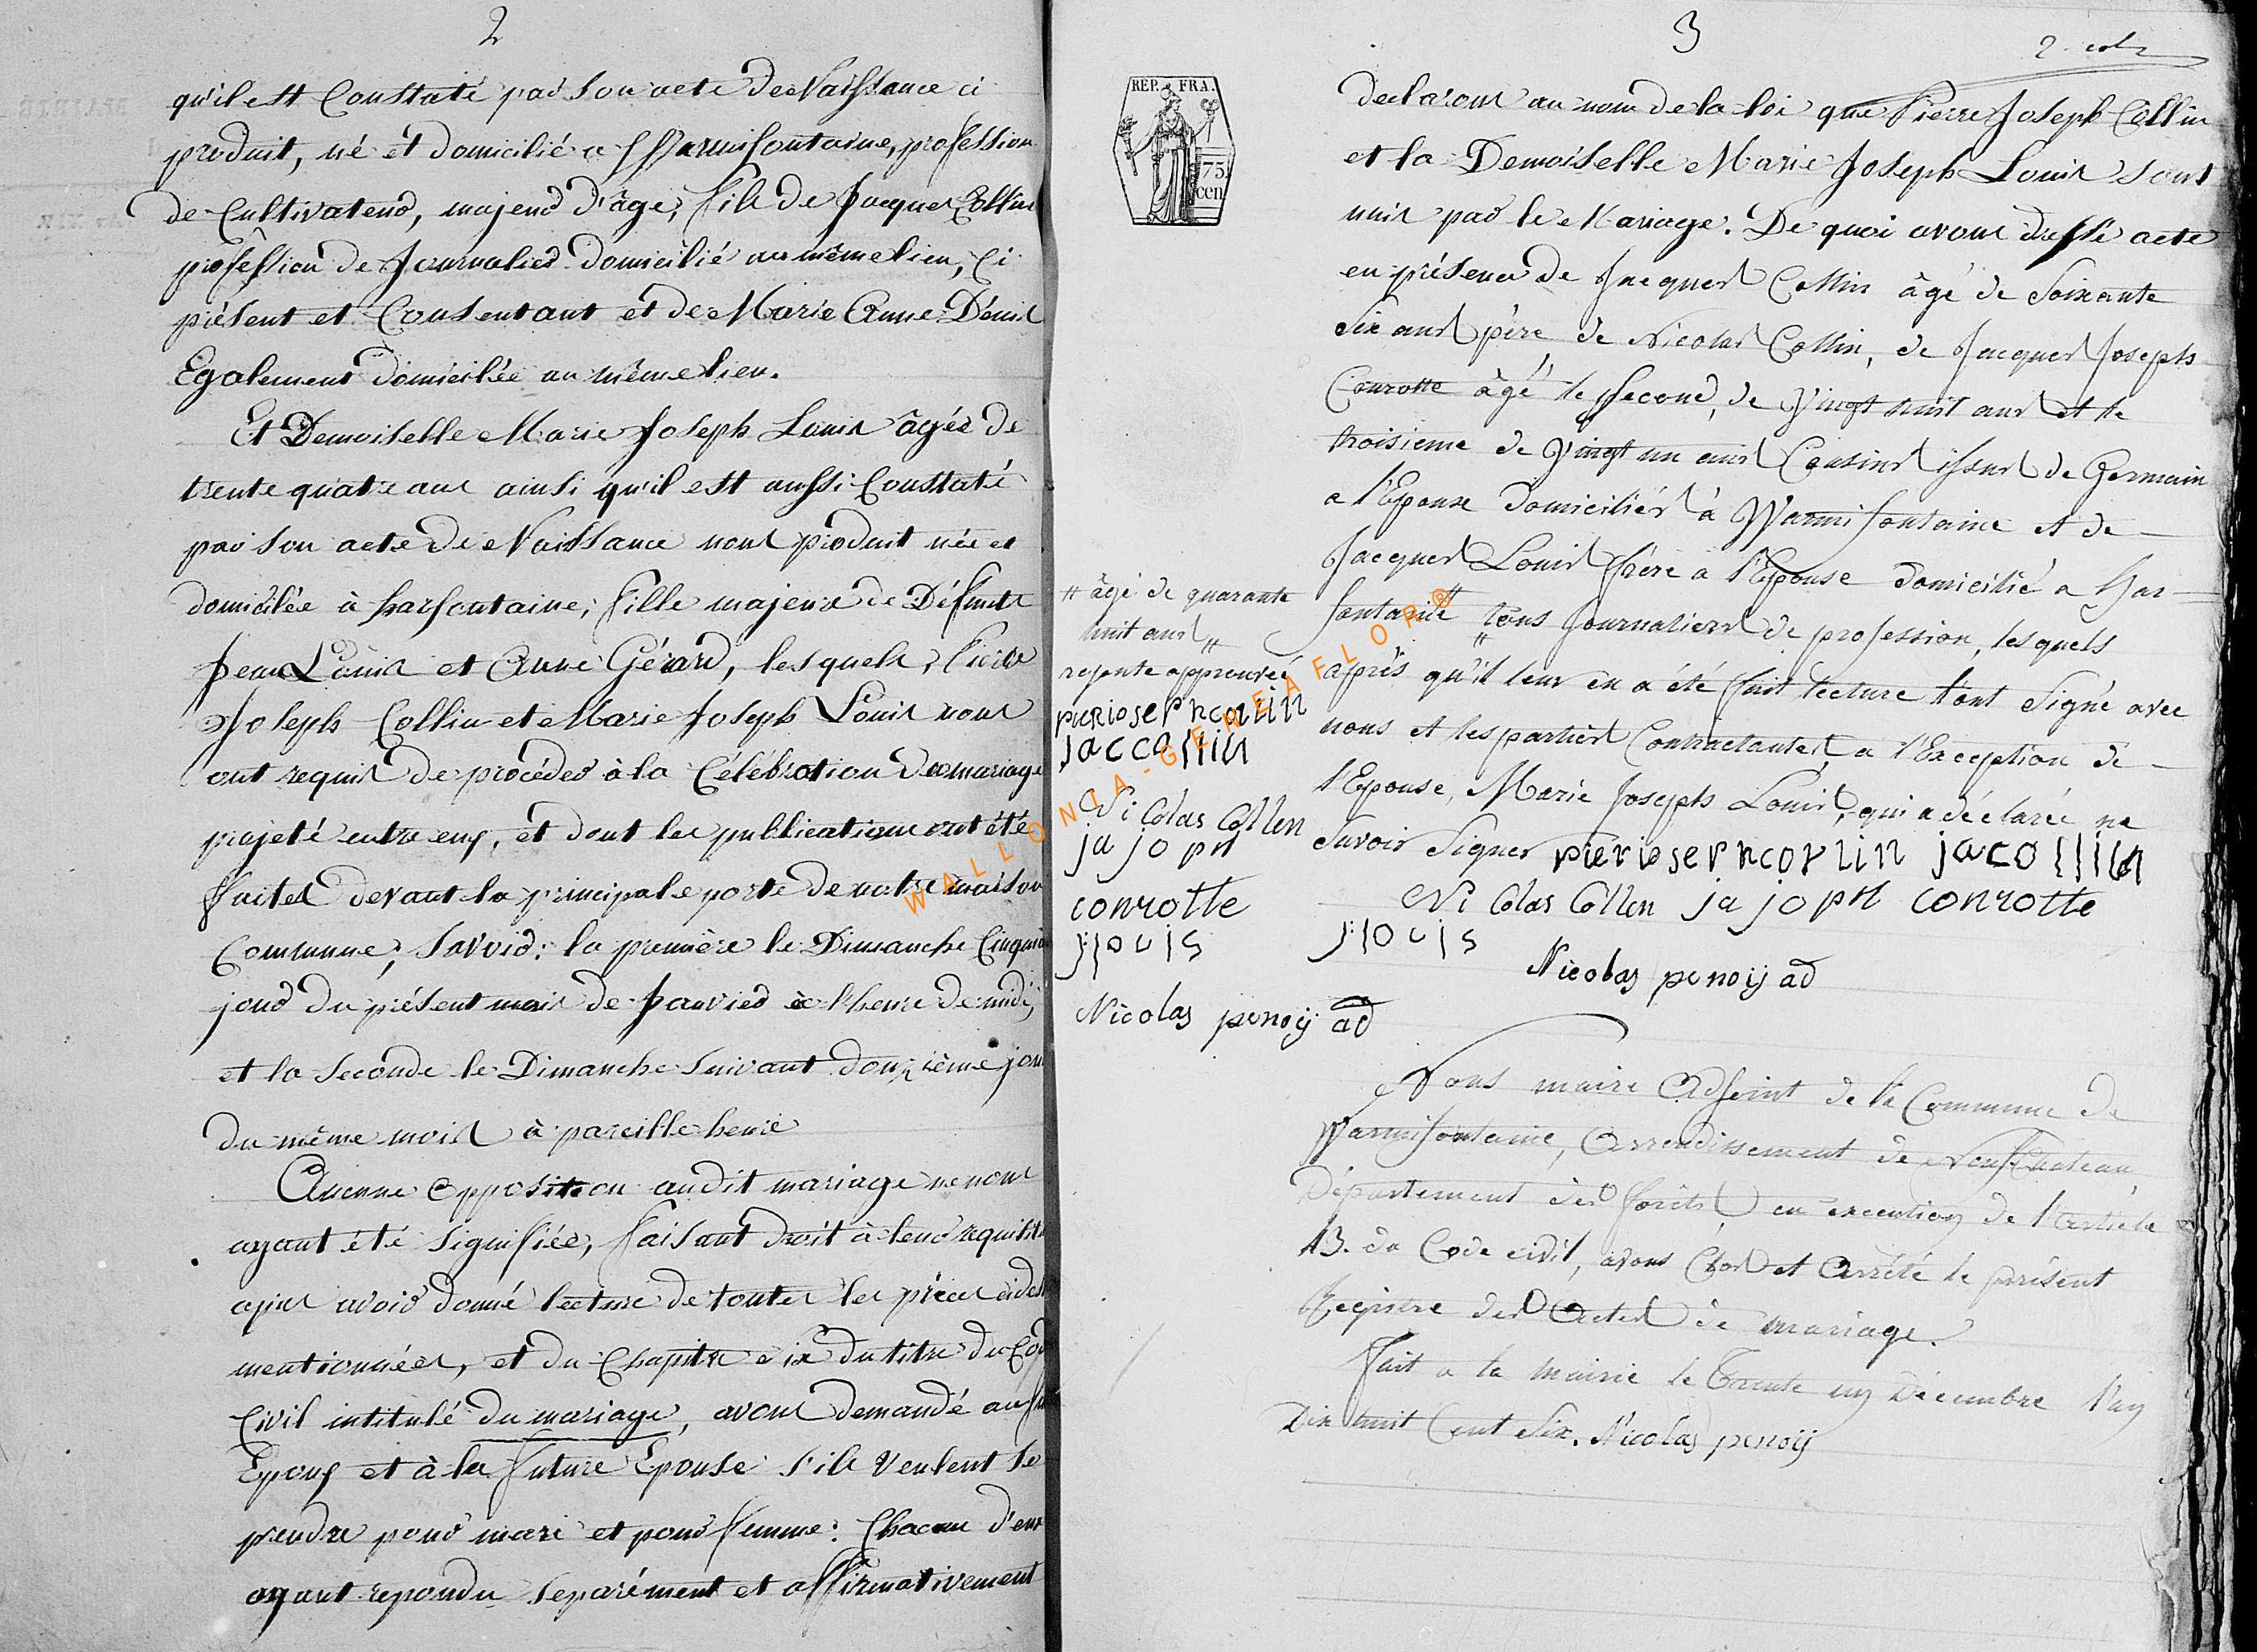 2
qu'il est Constaté par son acte de Naissance ci
produit, né et domicilié a Warmifontaine, profession
de Cultivateur, majeur d'âge, fils de Jacques Collin
profession de Journalier domicilié au même lieu, ci
présent et Consentant et de Marie Anne Denis
Egalement domiciliée au même lieu.
Et Demoiselle Marie Joseph Louis âgée de
trente quatre ans ainsi qu'il est aussi Constaté
par son acte de Naissance nous produit née et
domiciliée à harfontaine, fille majeure de Défunts
Jean Louis et Anne Gérard, lesquels, Pierre
Joseph Collin et Marie Joseph Louis nous
ont requis de procéder à la Célébration du mariage
projeté entre eux, et dont les publications ont été
faites devant la principale porte de notre maison
Commune, Savoir: la première le Dimanche Cinquiè
jour du présent mois de Janvier à l'heure de midi,
et la seconde le Dimanche suivant douzième jour
du même mois à pareille heure
Aucune opposition audit mariage ne nous
ayant été signifiée, faisant droit à leur requisit
après avoir donné lecture de toutes les pièces cides
mentionnées, et du Chapitre six du titre du Cod
Civil intitulé du mariage, avons demandé au fut
Epoux et à la future Epouse s'ils veulent se
prendre pour mari et pour femme: Chacun d'eux
ayant repondu separément et affirmativement
3
REP. FRA.
75
cen
declarons au nom de la loi que Pierre Joseph Collin
et la Demoiselle Marie Joseph Louis sont
unis par le Mariage. De quoi avons dressé acte
en présence de Jacques Collin âgé de Soixante
Six ans père de Nicolas Collin, de Jacques Joseph
Conrotte âgé le second, de Vingt huit ans et le
troisieme de Vingt un ans Cousins issus de Germain
a l'Epouse domiciliés à Warmifontaine et de
Jacques Louis frère à l'Epouse domicilié a Har
fontaine " tous Journaliers de profession, lesquels
après qu'il leur en a été fait lecture l'ont signé avec
nous et les parties Contractantes, a l'Exception de
l'Epouse, Marie Joseph Louis, qui a déclaré ne
Savoir Signer pierioserhcorlin jacollin
Ni Colas Collen ja joph conrotte
j louis
Nicolas penoij ad
" âgé de quarante
huit ans "
rejonte approuvée
pierioserhcorlin
jaccollin
Ni Colas Collen
ja jo ph
conrotte
j louis
Nicolas penoij ad
Nous maire Adjoint de la Commune de
Warmifontaine, Arrondissement de Neufchateau,
Département des forêts, en execution de l'article
43. du Code civil, avons Clos et Arrêté le présent
Registre des Actes de mariage.
Fait a la Mairie le Trente un Décembre l'an
Dix huit Cent Six. Nicolas penoij
WALLONIA-GENEAFLOR®